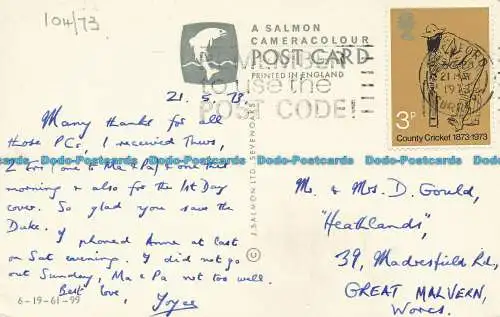 104/73
A SALMON
CAMERACOLOUR
POST CARD
PRINTED IN ENGLAND
REMEMBER
to use the
POST CODE!
21 MAY
1973
3P
County Cricket 1873-1973
21.5.73.
Many thanks for all
those PCs, I received Thurs,
2 Fri (one to Ma & Pa) & one this
morning & also for the 1st Day
cover. So glad you saw the
Duke.
I phoned Anne at last
on Sat evening. I did not go
out Sunday, Ma & Pa not too well.
Best love,
Joyce
6-19-61-99
© J. SALMON LTD., SEVENOAKS
Mr. & Mrs. D. Gould,
"Heathlands",
39, Madresfield Rd,
GREAT MALVERN,
Worcs.
Dodo-Postcards Dodo-Postcards Dodo-Postcards Dodo-Postcards Dodo-Postcards